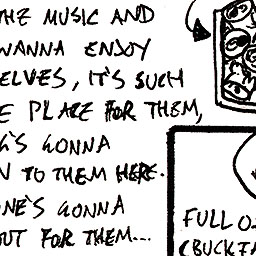 THE MUSIC AND
WANNA ENJOY
ELVES, IT'S SUCH
E PLACE FOR THEM,
G'S GONNA
N TO THEM HERE.
ONE'S GONNA
OUT FOR THEM...
FULL O
(BUCKFA